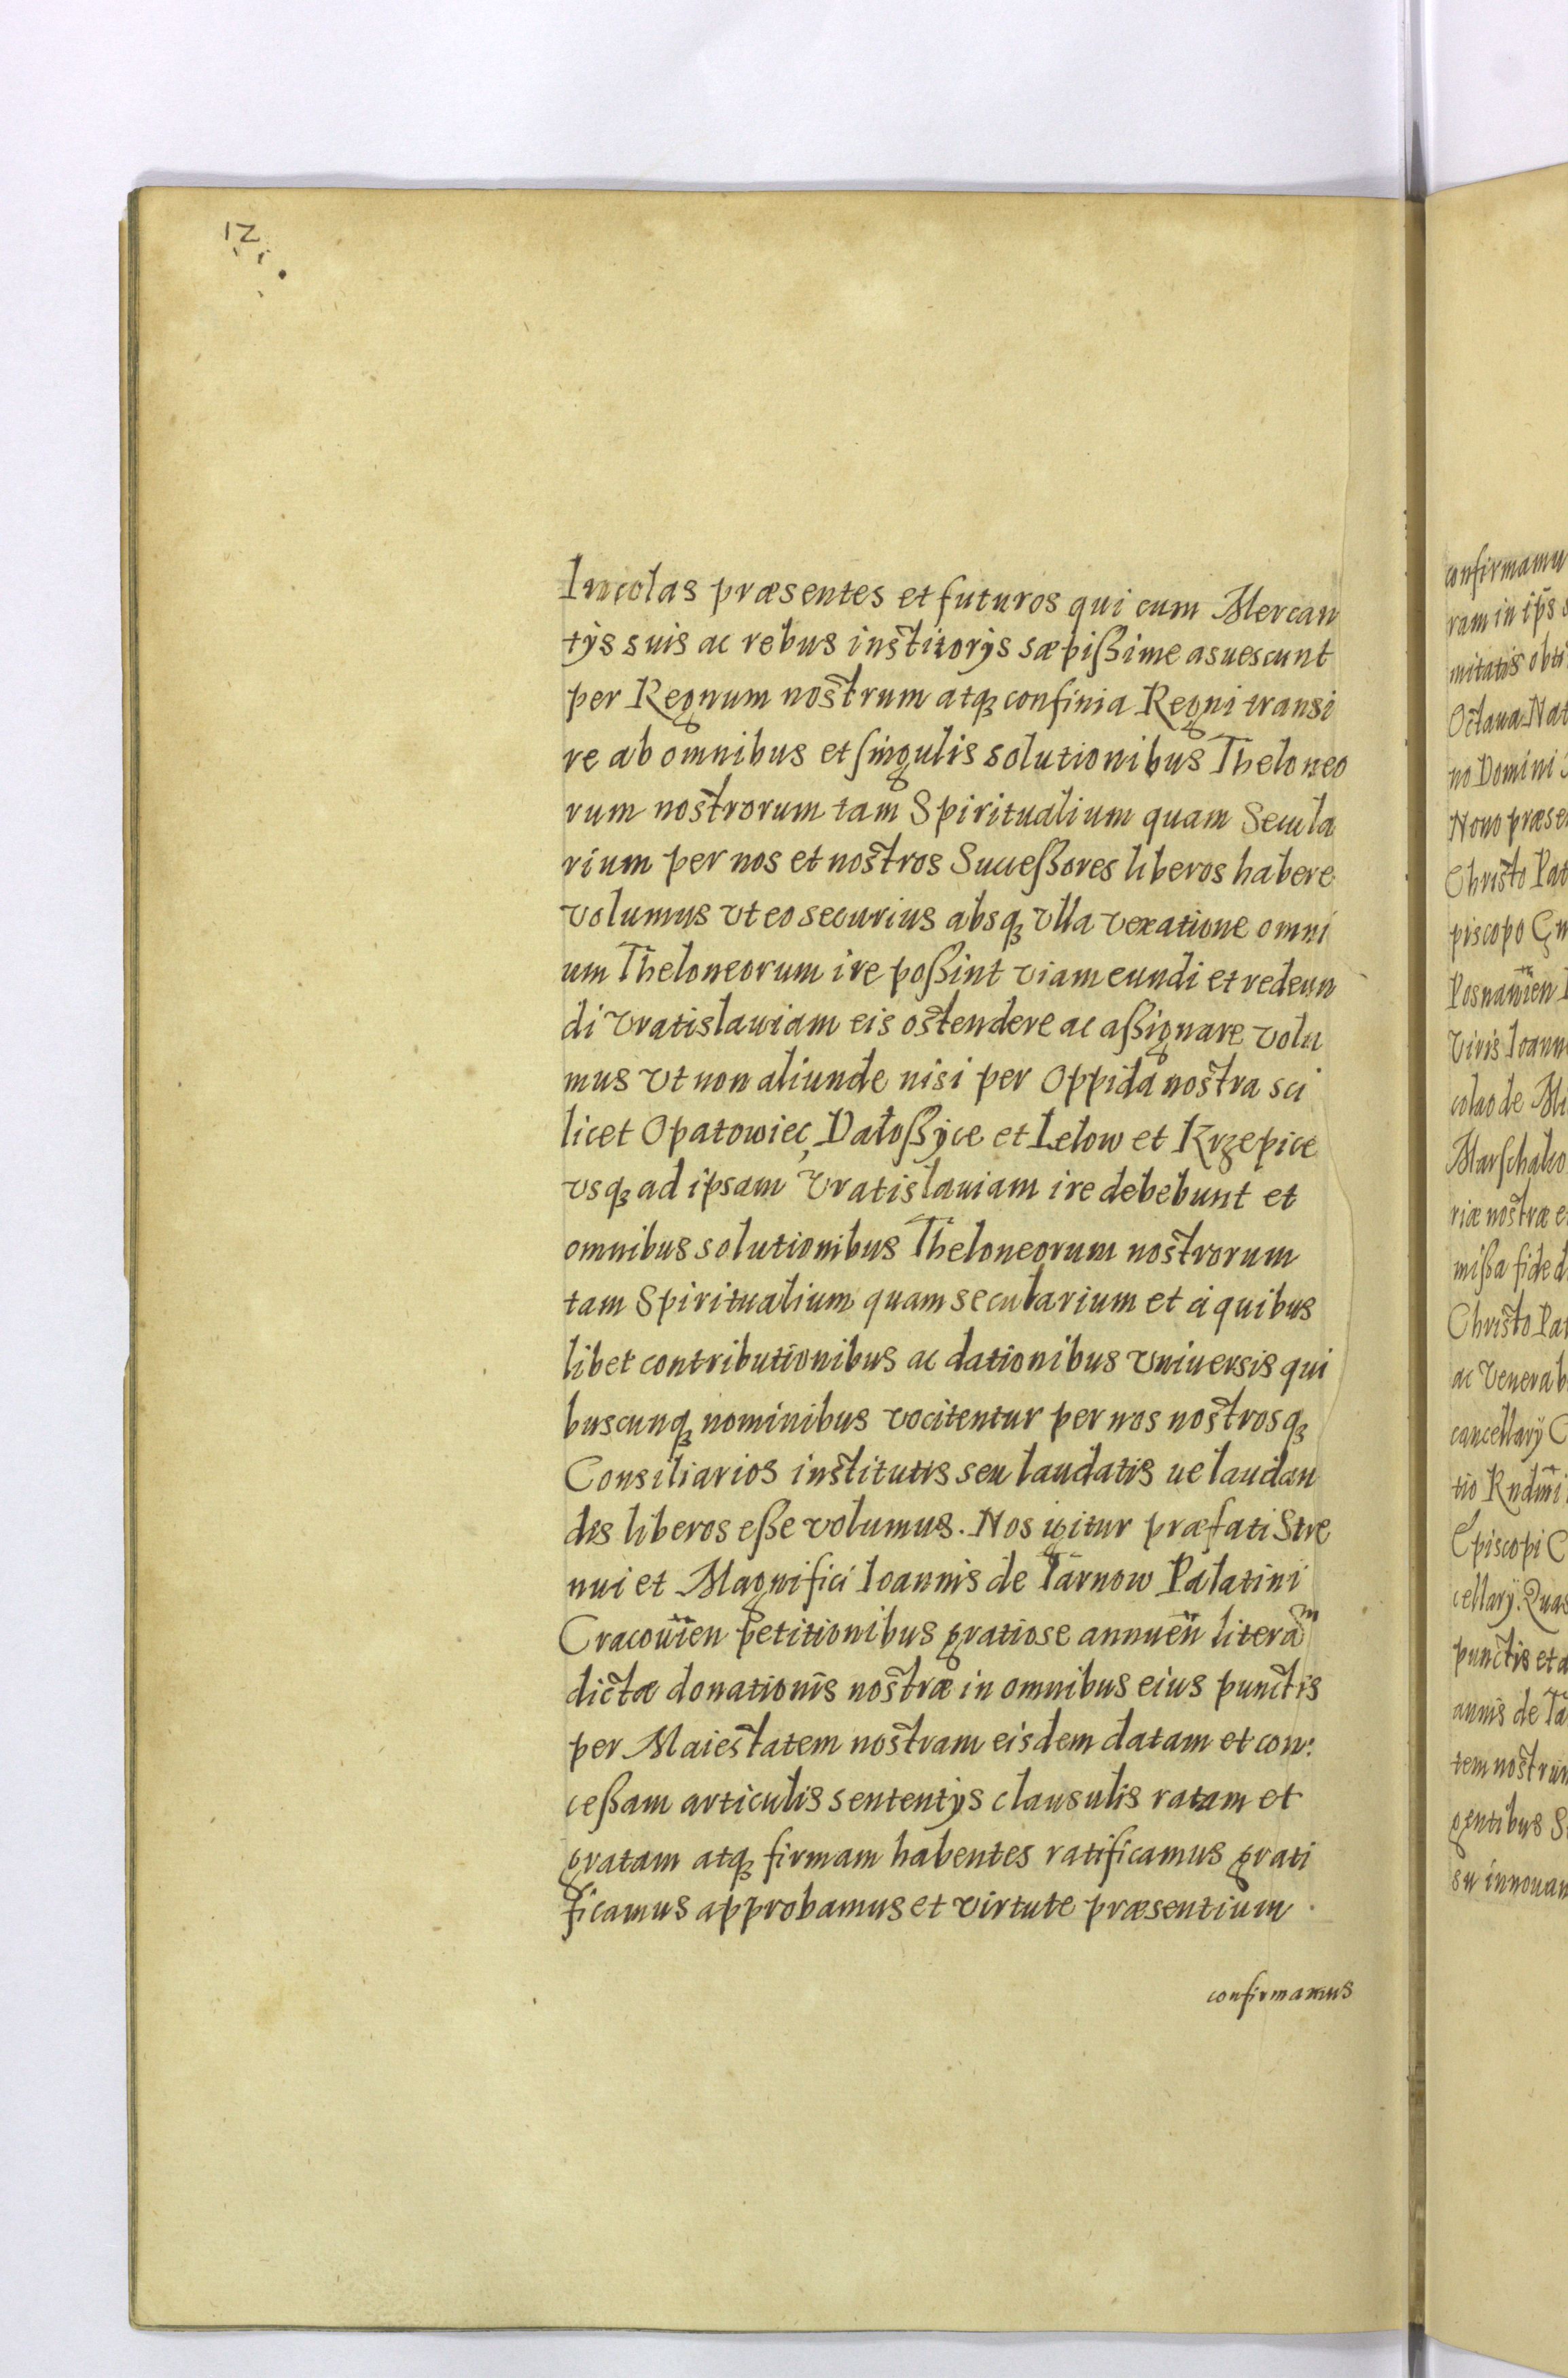 12
Incolas præsentes et futuros qui cum Mercan
tÿs suis ac rebus institorÿs sæpißime asuescunt
per Regnum nostrum atq₃ confinia Regni transi
re ab omnibus et singulis solutionibus Theloneo
rum nostrorum tam Spiritualium quam Secula
rium per nos et nostros Succeßores liberos habere
volumus vt eo securius absq₃ vlla vexatione omni
um Theloneorum ire poßint viam eundi et redeun
di Vratislauiam eis ostendere ac aßignare volu
mus vt non aliunde nisi per Oppida nostra sci
licet Opatowiec, Dałoßÿce et Lelow et Krzepice
vsq₃ ad ipsam Vratislauiam ire debebunt et
omnibus solutionibus Theloneorum nostrorum
tam Spiritualium quam secularium et a quibus
libet contributionibus ac dationibus vniuersis qui
buscunq₃ nominibus vocitentur per nos nostrosq₃
Consiliarios institutis seu laudatis ue laudan
dis liberos eße volumus. Nos igitur præfati Stre
nui et Magnifici Ioannis de Tarnow Palatini
Cracouien petitionibus gratiose annuen litera
dictæ donationis nostræ in omnibus eius punctis
per Maiestatem nostram eisdem datam et con:
ceßam articulis sententÿs clausulis ratam et
gratam atq₃ firmam habentes ratificamus grati
ficamus approbamus et virtute præsentium
confirmamus
confirmamu
ram in ips
mitatis obti
Octaua Nat
no Domini
Nono præse
Christo Pat
piscopo
Posnanien
Viris Ioann
colao de Mi
Marschalco
riæ nostræ e
mißa fide d
Christo Pat
ac Venerab
cancellarÿ C
tio Rndmi
Episcopi C
cellarÿ. Quas
punctis et a
annis de Ta
tem nostram
gentibus S
su innouan